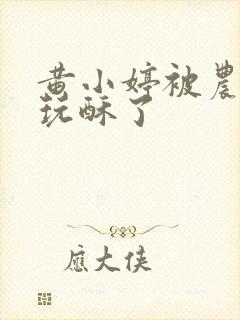 黄小婷被農
玩酥了
應大俠